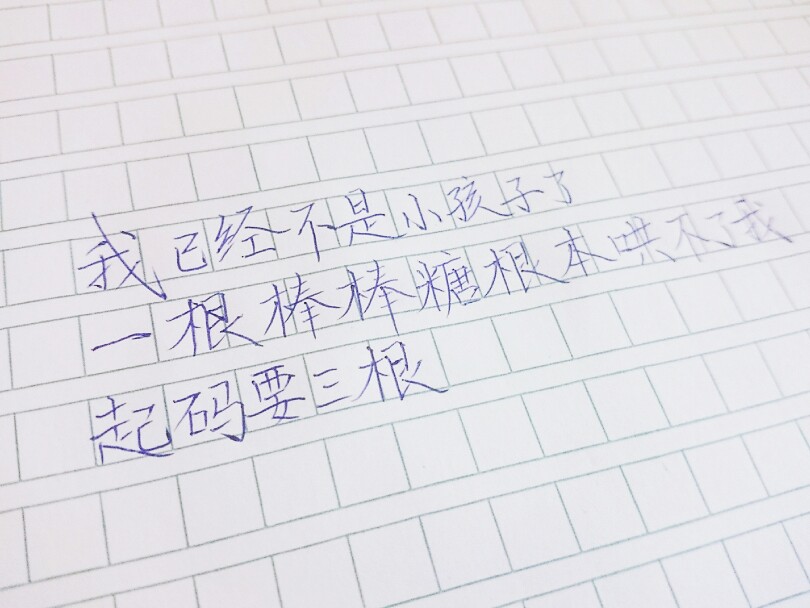 我已经不是小孩子了
一根棒棒糖根本哄不了我
起码要三根